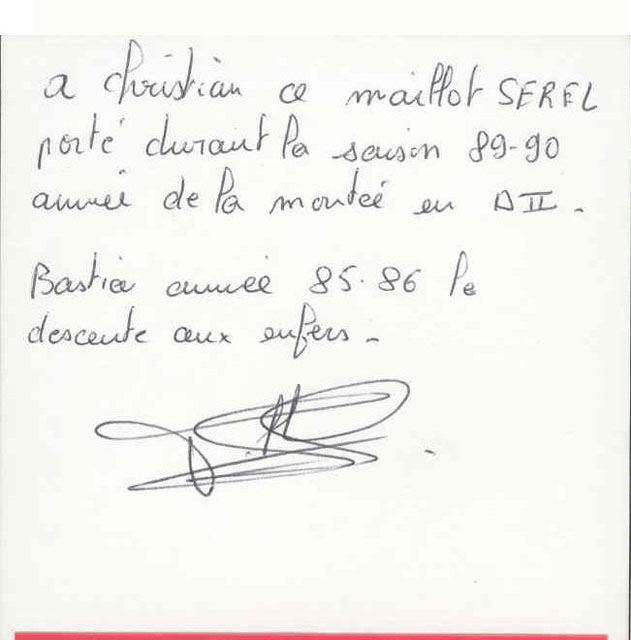 a christian ce maillot SEREL
porté durant la saison 89-90
année de la montée en DII.
Bastia année 85.86 le
descente aux enfers.